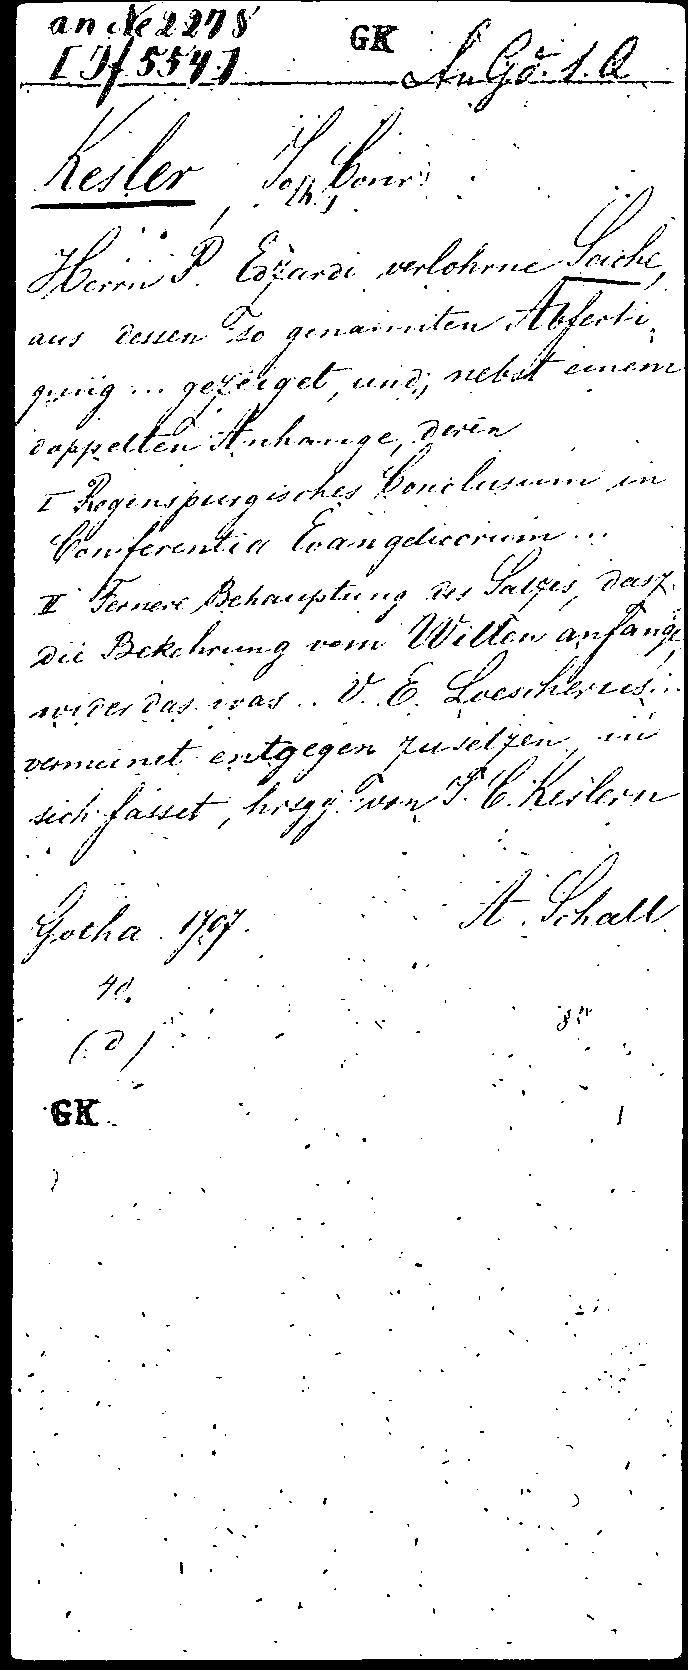 an Ne 2278
[If 554.]
GK
An Gd. 1. Q.
Kesler, Joh. Conr:
Herrn P. Edzardi verlohrne Sache,
aus dessen so genannten Abferti-
gung ... gezeiget, und, nebst einem
doppelten Anhange, deren
I Regenspurgisches Conclusum in
Conferentia Evangelicorum ...
II Fernere Behauptung des Satzes, dasz
die Bekehrung vom Willen anfange,
wider das was .. V. E. Loescherus ...
vermeinet entgegen zu setzen, in
sich fasset, hrsgg. von J. C. Keslern
Gotha 1707.
A. Schall.
40.
(d)
GK